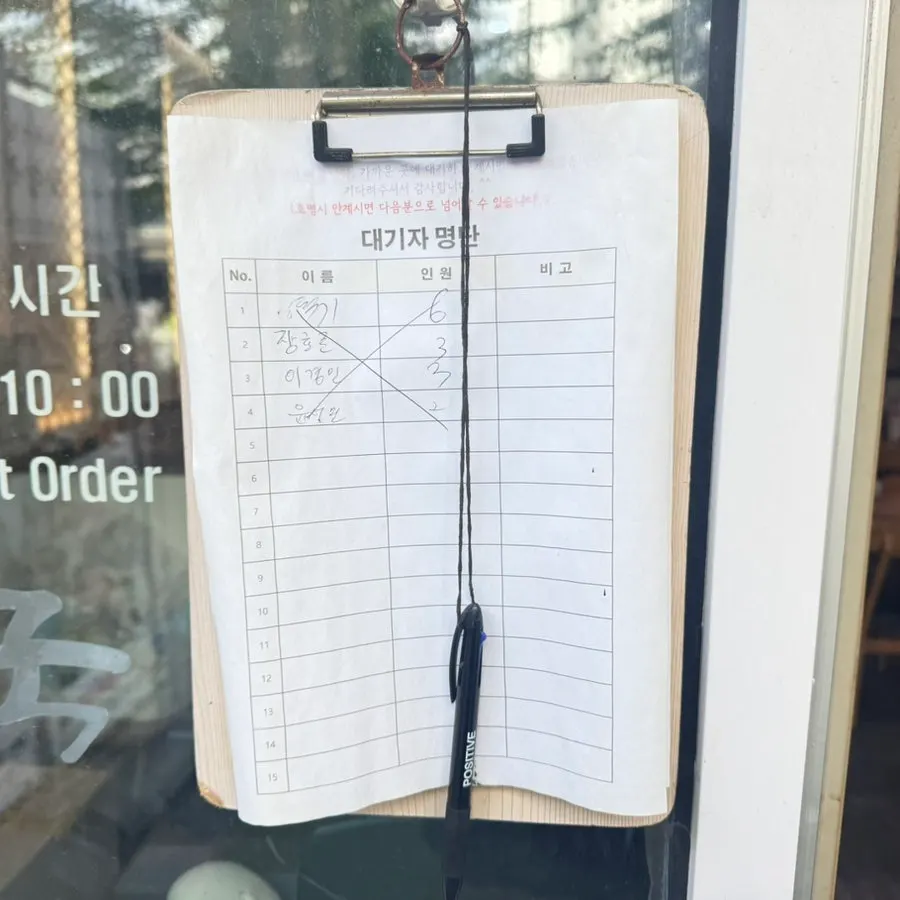 가까운 곳에 대기하
기다려주셔서 감사합니다. ^^
호명시 안계시면 다음분으로 넘어갈 수 있습니다
대기자 명단
No. 이름 인원 비고
1 6
2 장효준 3
3 이경인 3
4 2
5
6
7
8
9
10
11
12
13
14
15
시간
10 : 00
t Order
POSITIVE